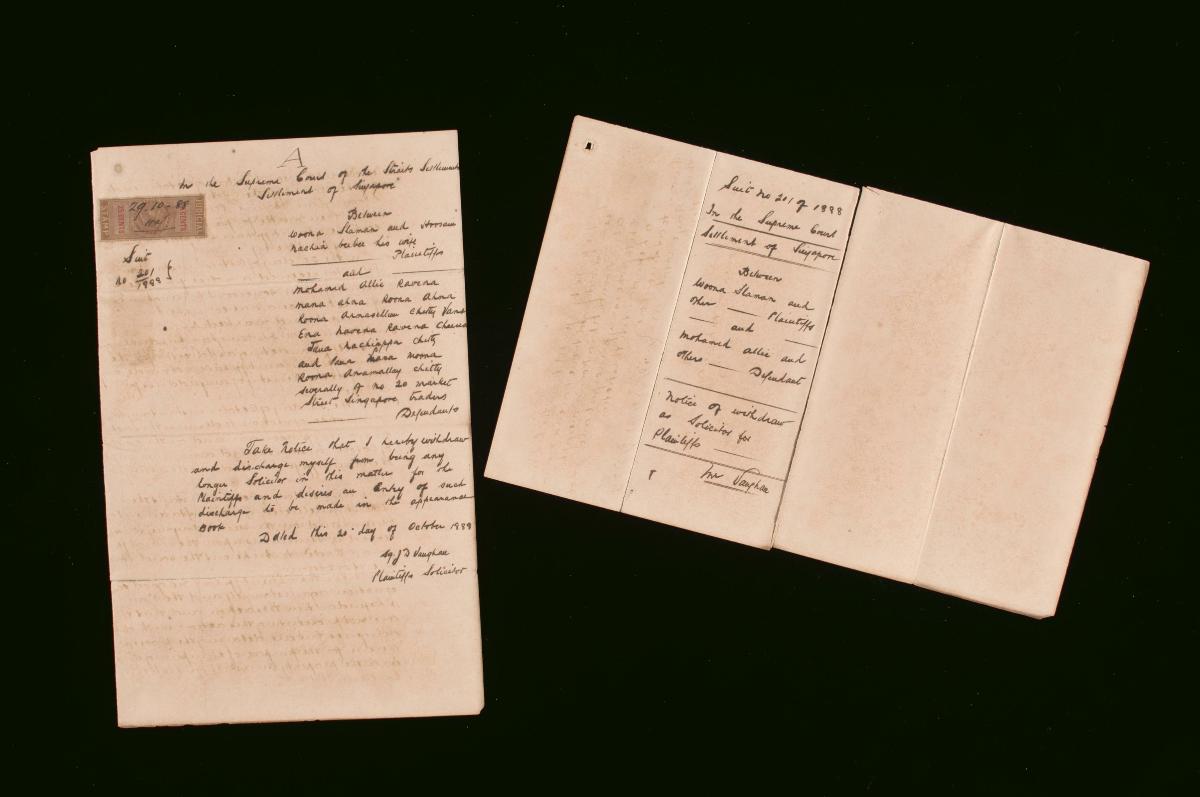 A
In the Supreme Court of the Straits Settlements
Settlement of Singapore
JUDICIAL
29.10-88
CENTS
Suit
No 201/1888
Between
Woona Slaman and Hoosain
nachia beebee his wife
Plaintiffs
and
Mohamed Allie Ravena
mana ahna Roona Ahna
Roona Arnasellum Chetty Vana
Ena Ravena Ravena
Tana nachiappa chetty
and Pana Mana moona
Roona Anamallay chetty
severally of no 20 market
Street Singapore traders
Defendants
Take Notice that I hereby withdraw
and discharge myself from being any
longer Solicitor in this matter for the
Plaintiffs and desires an Entry of such
discharge to be made in the appearance
Book
Dated this 20 day of October 1888
Sg. J D Vaughan
Plaintiffs Solicitor
Suit no 201 of 1888
In the Supreme Court
Settlement of Singapore
Between
Woona Slaman and
other Plaintiffs
and
Mohamed Allie and
others Defendant
Notice of withdraw
as Solicitor for
Plaintiffs
Mr Vaughan